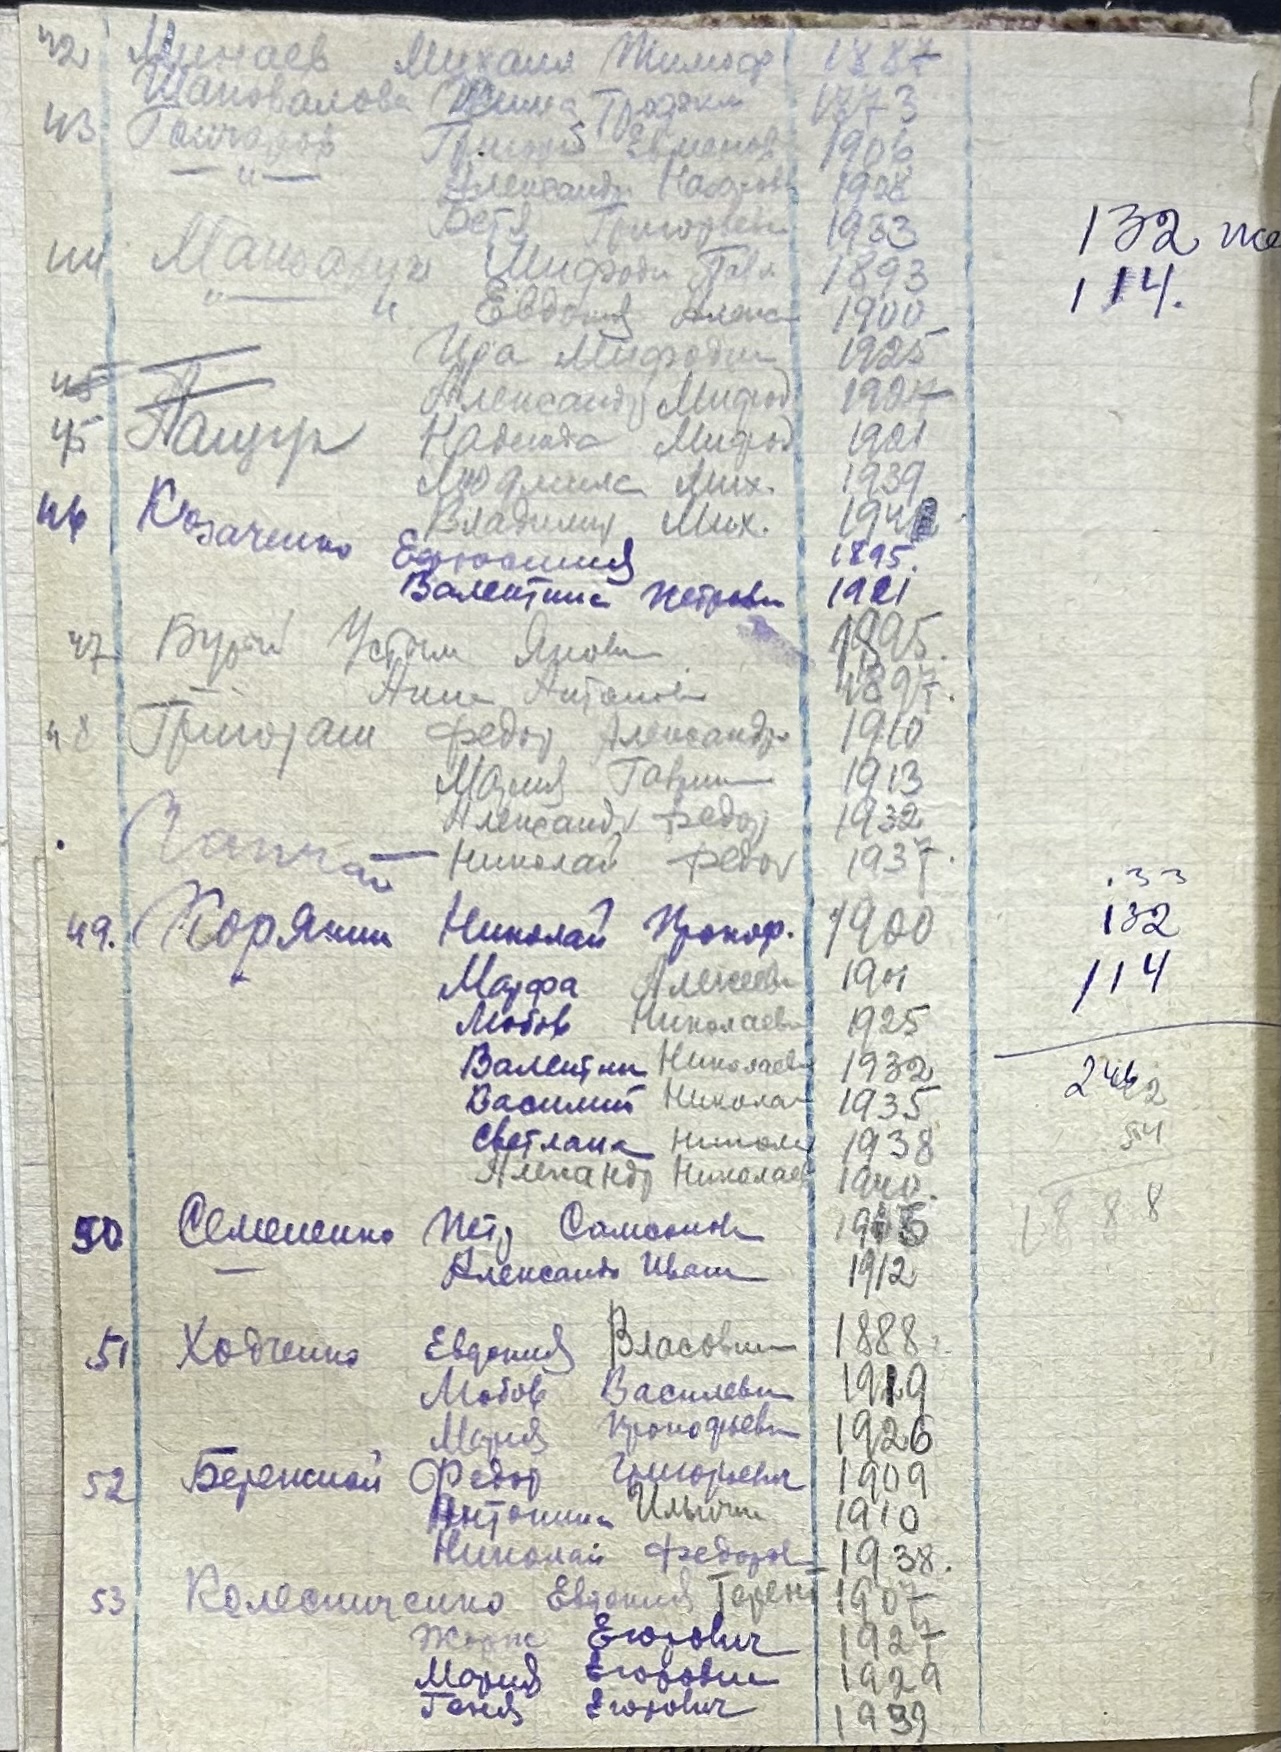 42 Минаев Михаил Тимоф 1887
Шаповалова Трофим 1873
43 Гончаров Григорий Евменов 1906
— " — Александр Назаров 1908
Петя Григорьев 1933
44 Мифоди Павл 1893
" — " Евдокия Алекс 1900
Ира Мифодии 1925
45 Александр Мифод 1927
45 Пащур Надежда Мифод 1921
Людмила Мих. 1939
Владимир Мих. 194
46 Козаченко Ефросиния 1895.
Валентина Петровн 1921
47 Бурый Устим Яковл 1895.
Анна Антонов 1897.
48 Григораш Федор Александро 1910
Мария Гаврил 1913
Александр Федор 1932
Николай Федор 1937.
49. Корякин Николай Прокоф. 1900
Марфа Алексеевн 1901
Любов Николаевн 1925
Валентин Николаев 1932
Василий Никола 1935
Светлана Никола 1938
Александр Николаев 1940.
50 Семененко Петр Самсонов 1905
— Александр Иван 1912
51 Ходченко Евдокия Власовн 1888.
Любов Василевн 1919
Мария Прокофьевн 1926
52 Бережной Федор Григорьевич 1909
Антонина Ильич 1910
Николай Федоров 1938.
53 Колесниченко Евдокия Терент 1907
Жорж Егорович 1927
Мария Егоровн 1929
Геня Егорович 1939
132 же
114.
133
132
114
246
2
54
1888